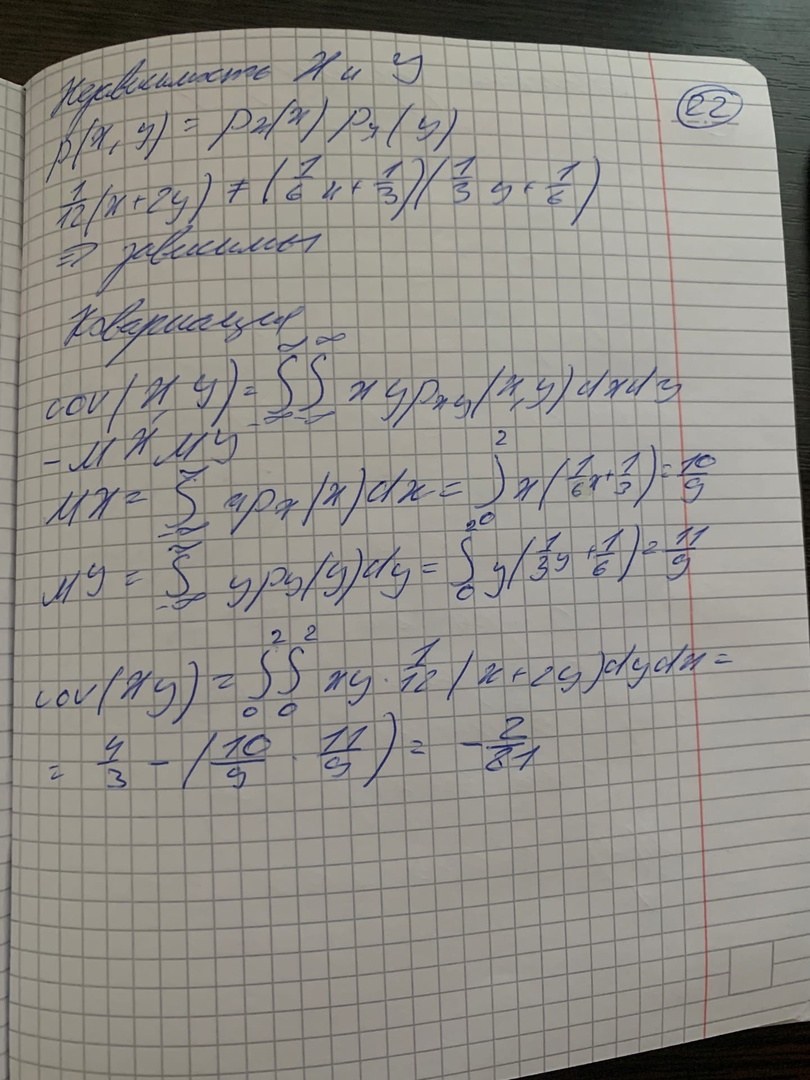 22
Независимость X и Y
p(x, y) = px(x) py(y)
1/12(x+2y) ≠ (1/6 x + 1/3)(1/3 y + 1/6)
⇒ зависимы
Ковариация
cov(X, Y) = ∫_{-∞}^{∞} ∫_{-∞}^{∞} x y p_{xy}(x,y) dx dy
- MX MY
MX = ∫_{-∞}^{∞} x p_x(x) dx = ∫_0^2 x(1/6 x + 1/3) = 10/9
MY = ∫_{-∞}^{∞} y p_y(y) dy = ∫_0^2 y(1/3 y + 1/6) = 11/9
cov(XY) = ∫_0^2 ∫_0^2 xy · 1/12 (x+2y) dy dx =
= 4/3 - (10/9 · 11/9) = - 2/81